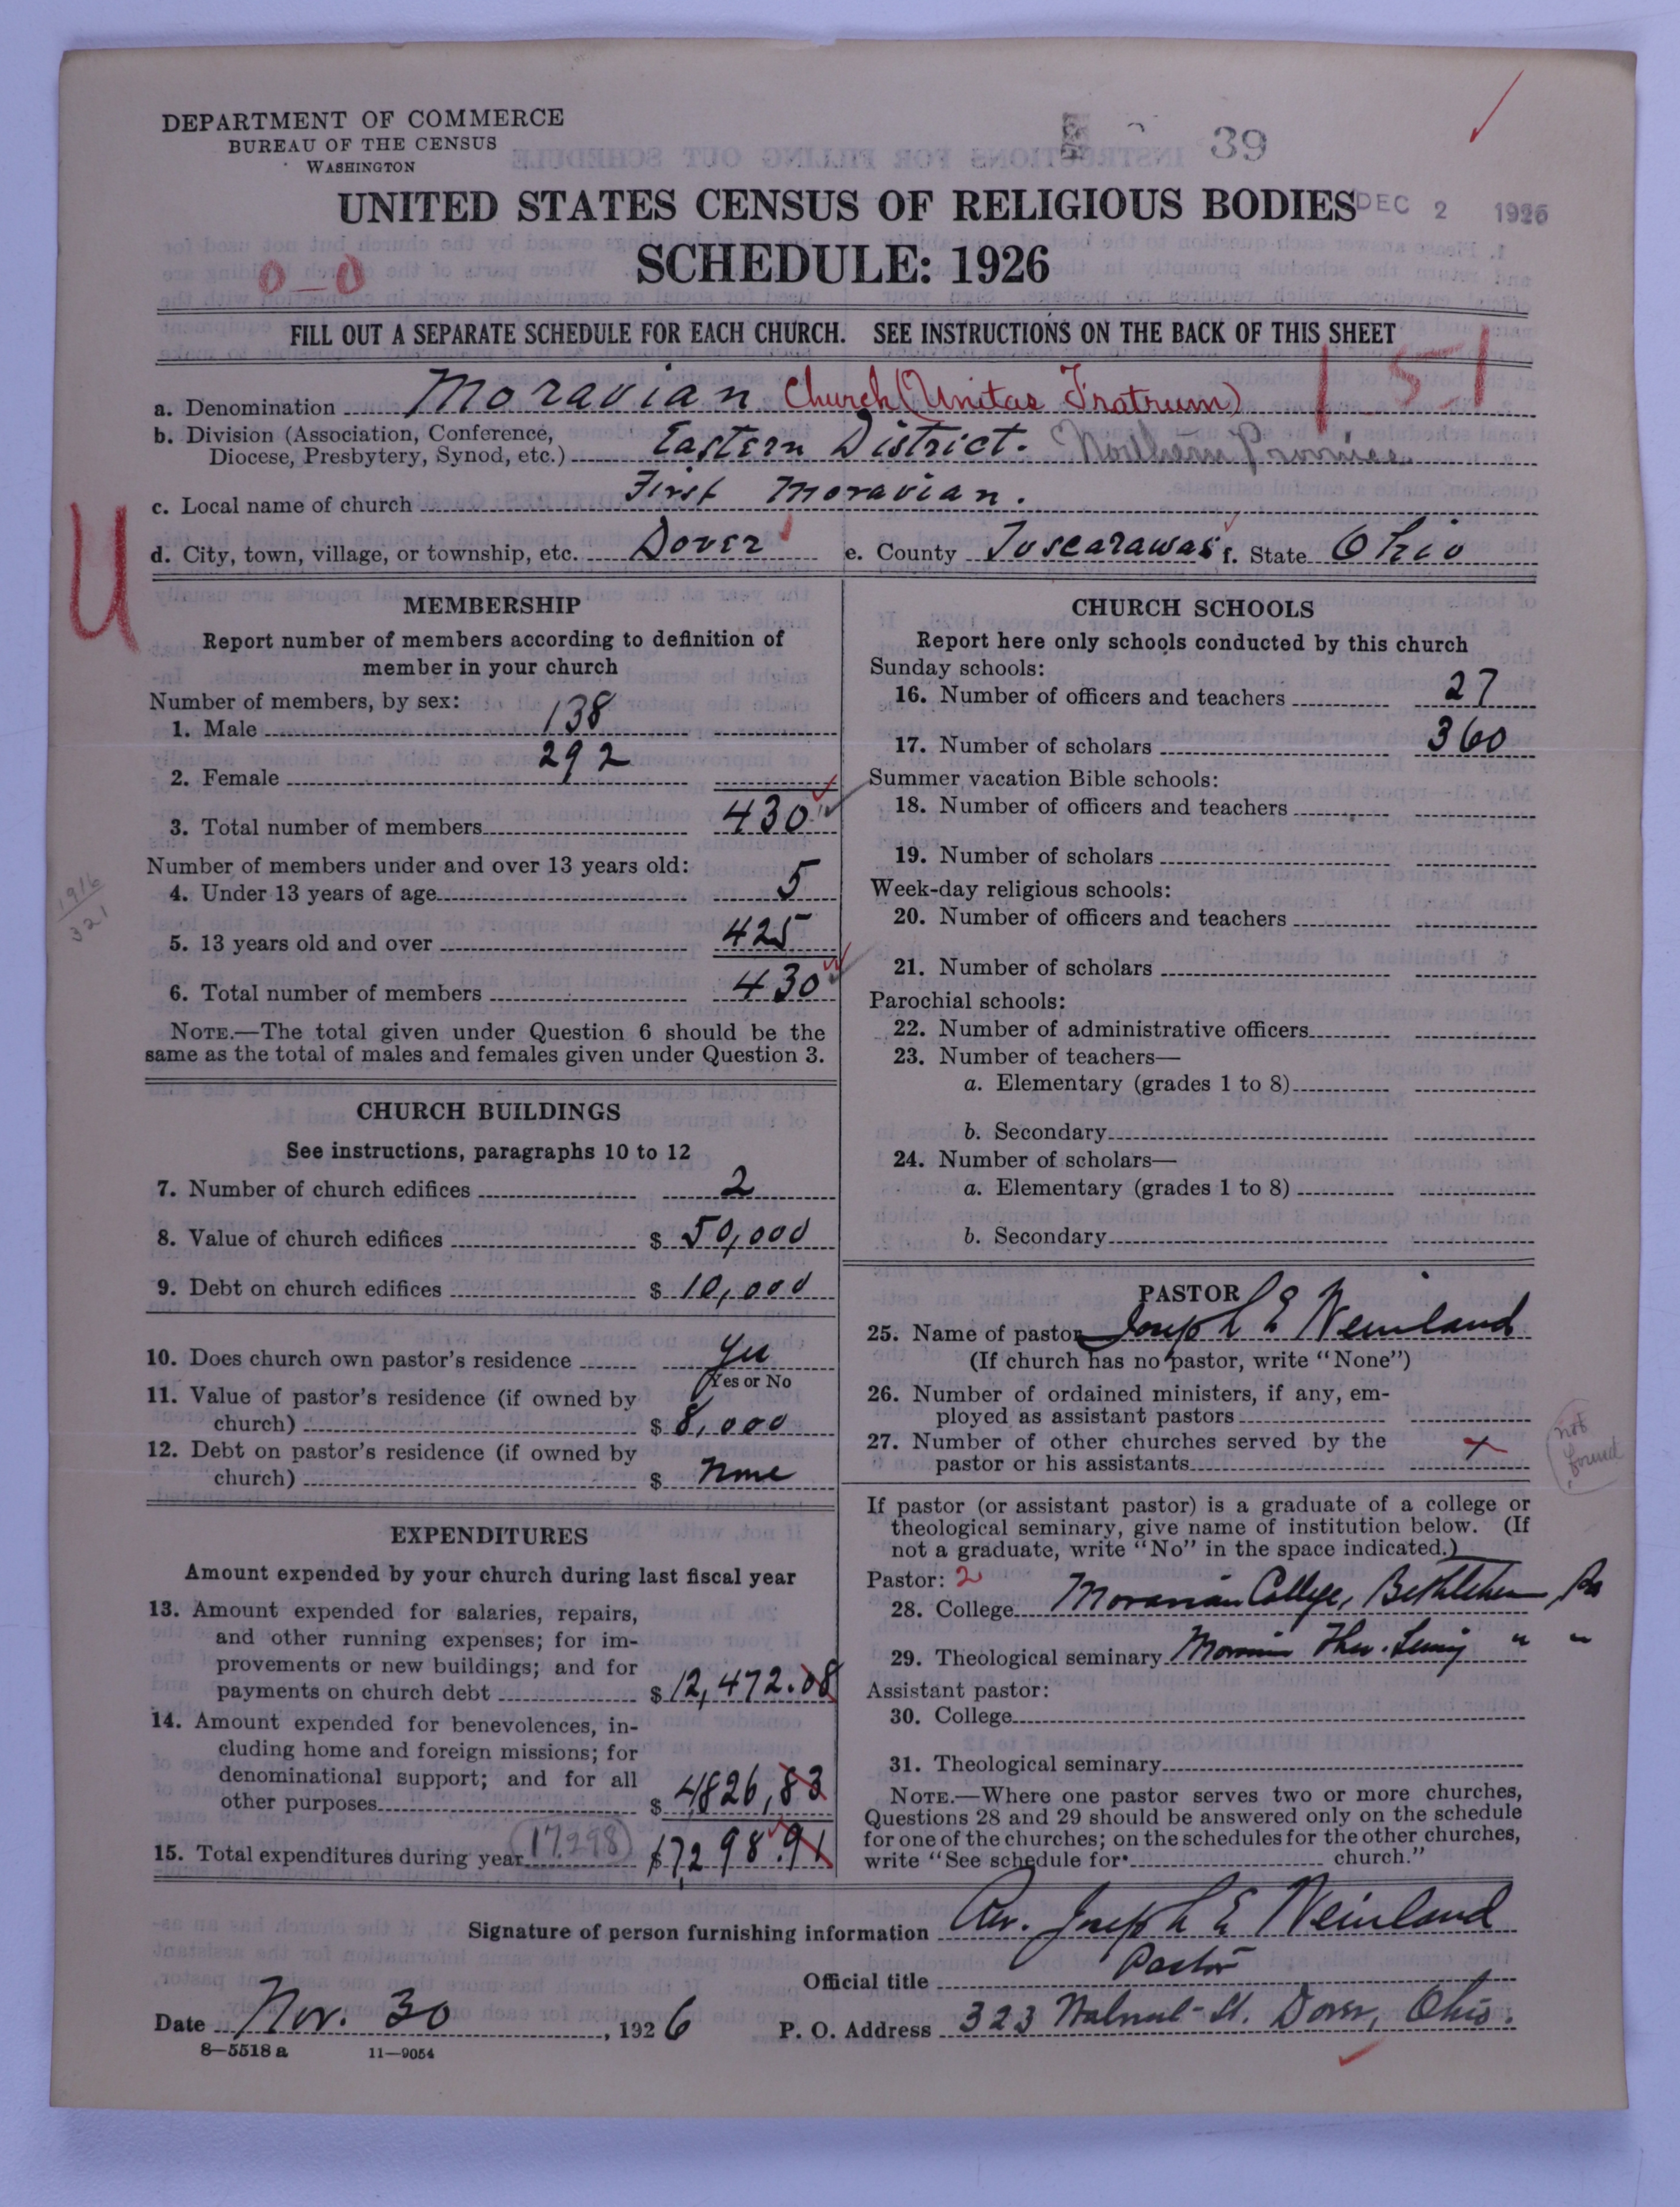 DEPARTMENT OF COMMERCE
BUREAU OF THE CENSUS
WASHINGTON
39
UNITED STATES CENSUS OF RELIGIOUS BODIES
DEC 2 1926
SCHEDULE: 1926
0-0
FILL OUT A SEPARATE SCHEDULE FOR EACH CHURCH. SEE INSTRUCTIONS ON THE BACK OF THIS SHEET
1 5 1
a. Denomination Moravian Church (Unitas Fratrum)
b. Division (Association, Conference,
Diocese, Presbytery, Synod, etc.) Eastern District. Northern Province
c. Local name of church First Moravian.
d. City, town, village, or township, etc. Dover e. County Tuscarawas f. State Ohio
U
MEMBERSHIP
Report number of members according to definition of
member in your church
Number of members, by sex:
1. Male 138
2. Female 292
3. Total number of members 430
Number of members under and over 13 years old:
4. Under 13 years of age 5
1916
321
5. 13 years old and over 425
6. Total number of members 430
NOTE.—The total given under Question 6 should be the
same as the total of males and females given under Question 3.
CHURCH BUILDINGS
See instructions, paragraphs 10 to 12
7. Number of church edifices 2
8. Value of church edifices $ 50,000
9. Debt on church edifices $ 10,000
10. Does church own pastor's residence Yes
Yes or No
11. Value of pastor's residence (if owned by
church) $ 8,000
12. Debt on pastor's residence (if owned by
church) $ None
EXPENDITURES
Amount expended by your church during last fiscal year
13. Amount expended for salaries, repairs,
and other running expenses; for im-
provements or new buildings; and for
payments on church debt $ 12,472.08
14. Amount expended for benevolences, in-
cluding home and foreign missions; for
denominational support; and for all
other purposes $ 4826,83
15. Total expenditures during year (17,298) $17,298.91
CHURCH SCHOOLS
Report here only schools conducted by this church
Sunday schools:
16. Number of officers and teachers 27
17. Number of scholars 360
Summer vacation Bible schools:
18. Number of officers and teachers
19. Number of scholars
Week-day religious schools:
20. Number of officers and teachers
21. Number of scholars
Parochial schools:
22. Number of administrative officers
23. Number of teachers—
a. Elementary (grades 1 to 8)
b. Secondary
24. Number of scholars—
a. Elementary (grades 1 to 8)
b. Secondary
PASTOR
25. Name of pastor Joseph E Weinland
(If church has no pastor, write "None")
26. Number of ordained ministers, if any, em-
ployed as assistant pastors
27. Number of other churches served by the
pastor or his assistants x
not
found
If pastor (or assistant pastor) is a graduate of a college or
theological seminary, give name of institution below. (If
not a graduate, write "No" in the space indicated.)
Pastor: 2
28. College Moravian College, Bethlehem, Pa
29. Theological seminary Moravian Theo. Semy " "
Assistant pastor:
30. College
31. Theological seminary
NOTE.—Where one pastor serves two or more churches,
Questions 28 and 29 should be answered only on the schedule
for one of the churches; on the schedules for the other churches,
write "See schedule for church."
Signature of person furnishing information Rev. Joseph E Weinland
Official title Pastor
Date Nov. 30, 1926 P. O. Address 323 Walnut St. Dover, Ohio.
8—5518 a 11—9054